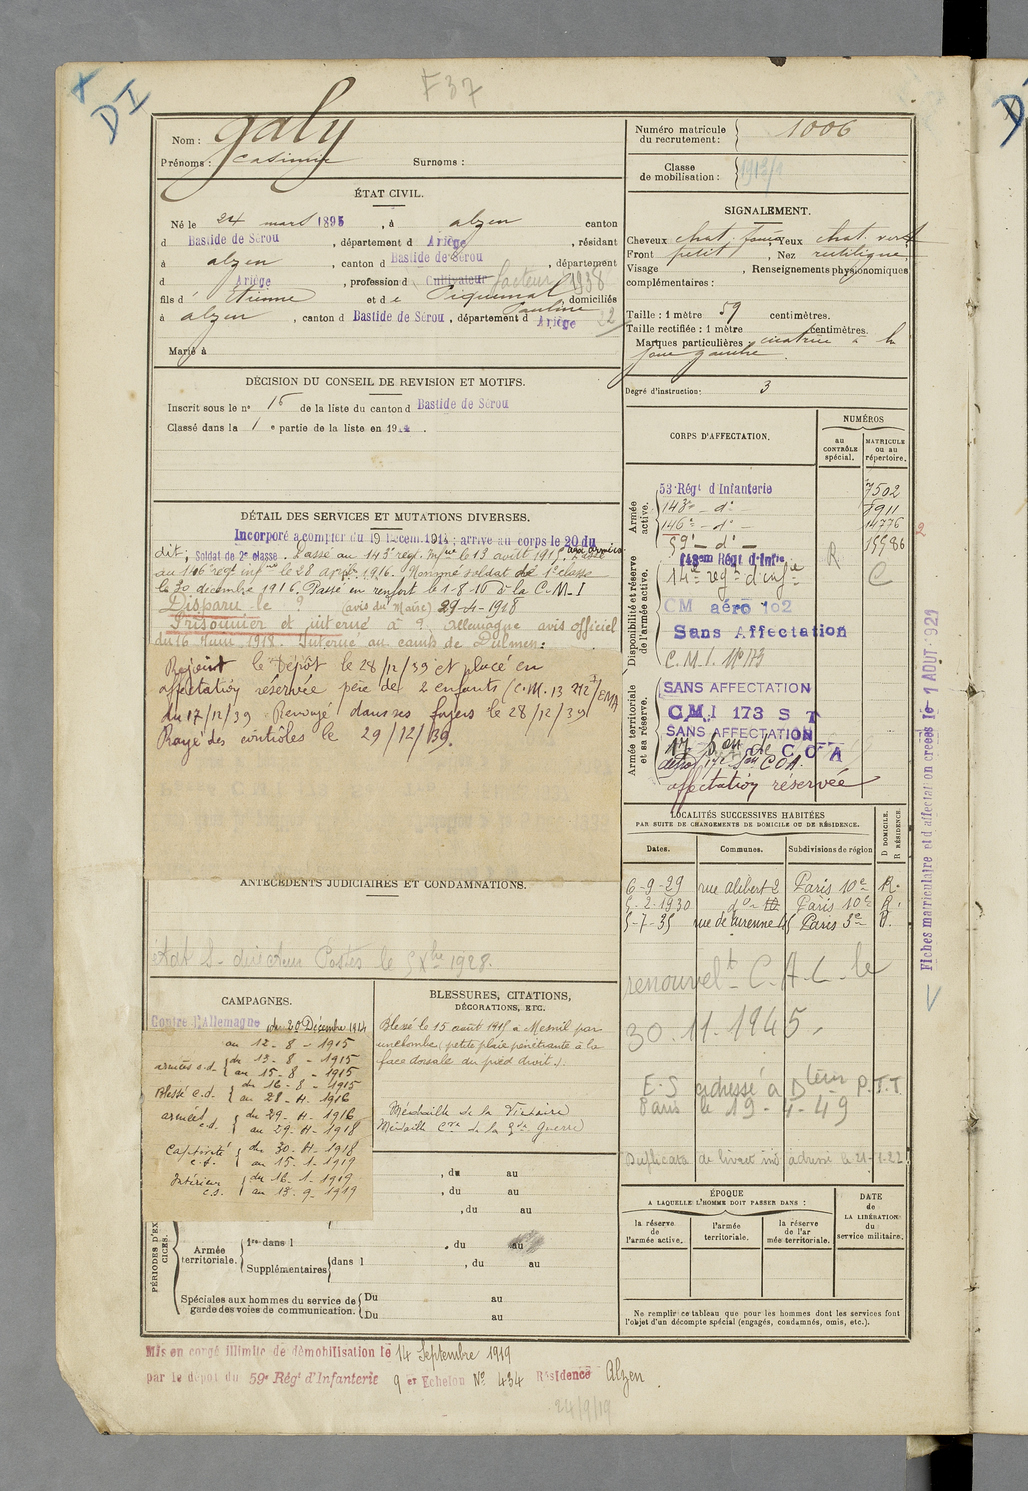 F 37
DI
Nom : Galy
Prénoms : Casimir Surnoms :
ÉTAT CIVIL.
Né le 24 mars 1895, à Alzen canton
d Bastide de Sérou, département d Ariège, résidant
à Alzen, canton d Bastide de Sérou, département
d Ariège, profession d Cultivateur facteur 1938
fils d' Étienne et de Piquemal Pauline, domiciliés
à Alzen, canton d Bastide de Sérou, département d Ariège 22
Marié à
DÉCISION DU CONSEIL DE REVISION ET MOTIFS.
Inscrit sous le n° 15 de la liste du canton d Bastide de Sérou
Classé dans la 1 e partie de la liste en 191
DÉTAIL DES SERVICES ET MUTATIONS DIVERSES.
Incorporé a compter du 19 Décem. 1914 ; arrivé au corps le 20 du
dit ; Soldat de 2e classe. Passé au 143e rég. Infrie le 13 août 1915 aux armées. Passé
au 146e régt infrie le 28 1916. Nommé soldat de 1e classe
le 20 décembre 1916. Passé en renfort le 1-8 10 à la C.M.I
Disparu le ? (avis du Maire) 29-4-1918
Prisonnier et interné à ? Allemagne avis officiel
du 16 1918. Interné au camp de Dulmen.
Rejoint le Dépôt le 28/12/39 et placé en
affectation réservée père de 2 enfants (C.M. 13 212 /EMA
du 17/12/39 Renvoyé dans ses foyers le 28/12/39
Rayé des contrôles le 29/12/39.
ANTÉCÉDENTS JUDICIAIRES ET CONDAMNATIONS.
S. directeur Postes le 5 Xbre 1928.
CAMPAGNES.
Contre l'Allemagne du 20 Décembre 1914
au 12 - 8 - 1915
armées c.d. du 13 - 8 - 1915
au 15 - 8 - 1915
Blessé c.d. du 16 - 8 - 1915
au 28 - 4 - 1916
armées c.d. du 29 - 4 - 1916
au 29 - 4 - 1918
Captivité c.s. du 30 - 4 - 1918
au 15 - 1 - 1919
Intérieur c.s. du 16 - 1 - 1919
au 13 - 9 - 1919
BLESSURES, CITATIONS,
DÉCORATIONS, ETC.
Blessé le 15 août 1915 à Mesnil par
une bombe (petite plaie pénétrante à la
face dorsale du pied droit).
Médaille de la Victoire
Médaille Cve de la Gde Guerre
, du au
, du au
, du au
PÉRIODES D'EXERCICES.
Armée territoriale. 1re dans l , du au
Supplémentaires dans l , du au
Spéciales aux hommes du service de garde des voies de communication. Du au
Du au
Mis en congé illimité de démobilisation le 14 Septembre 1919
par le dépôt du 59e Régt d'Infanterie 9 er Echelon No 434 Résidence Alzen.
24/9/19
Numéro matricule du recrutement : 1006
Classe de mobilisation :
SIGNALEMENT.
Cheveux chat. foncé, Yeux chat. vert
Front petit, Nez rectiligne
Visage , Renseignements physionomiques
complémentaires :
Taille : 1 mètre 59 centimètres.
Taille rectifiée : 1 mètre centimètres.
Marques particulières : cicatrice à la
joue gauche.
Degré d'instruction : 3
CORPS D'AFFECTATION.
NUMÉROS
au CONTRÔLE spécial.
MATRICULE ou au répertoire.
Armée active.
53e Régt d'Infanterie 7502
143e - do - 8911
146e - do - 14776
59e - do - 15986
Disponibilité et réserve de l'armée active.
14e régt d'infie R C
CM aéro 102
Sans Affectation
C.M.I. No 173
Armée territoriale et sa réserve.
SANS AFFECTATION
C.M.I 173 S T
SANS AFFECTATION
17 Son de C O A
dépôt 17e Son COA.
affectation réservée
LOCALITÉS SUCCESSIVES HABITÉES
PAR SUITE DE CHANGEMENTS DE DOMICILE OU DE RÉSIDENCE.
Dates. Communes. Subdivisions de région D DOMICILE. R RÉSIDENCE.
6-9-29 rue Alibert 2 Paris 10e R.
5-2-1930 do 10 Paris 10e R.
5-7-35 rue de Turenne Paris 3e D.
renouvelt C.A.L. le
30.11.1945.
E-S adressé à Dteur P.T.T
Paris le 19-4-49
Duplicata de livret ind adressé le 21-1-22
ÉPOQUE
A LAQUELLE L'HOMME DOIT PASSER DANS :
la réserve de l'armée active.
l'armée territoriale.
la réserve de l'armée territoriale.
DATE de LA LIBÉRATION du service militaire.
Ne remplir ce tableau que pour les hommes dont les services font
l'objet d'un décompte spécial (engagés, condamnés, omis, etc.).
Fiches matriculaire et d'affectation créées le 1 AOUT 1921